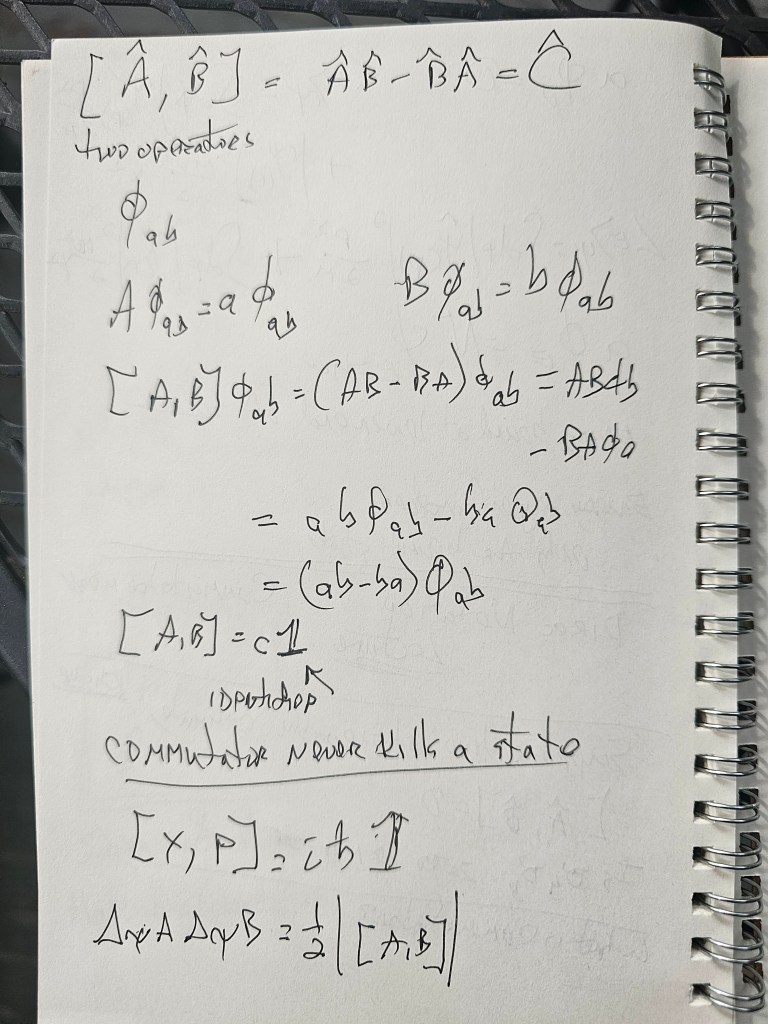 [Â, B̂] = ÂB̂ - B̂Â = Ĉ
two operators
ϕ_ab
Aϕ_ab = a ϕ_ab Bϕ_ab = b ϕ_ab
[A,B] ϕ_ab = (AB - BA) ϕ_ab = ABϕb
- BAϕa
= a b ϕ_ab - ba ϕ_ab
= (ab - ba) ϕ_ab
[A,B] = c𝟙
commutator never kills a state
[x, p] = iħ 𝟙
ΔψA ΔψB = 1/2 |[A,B]|